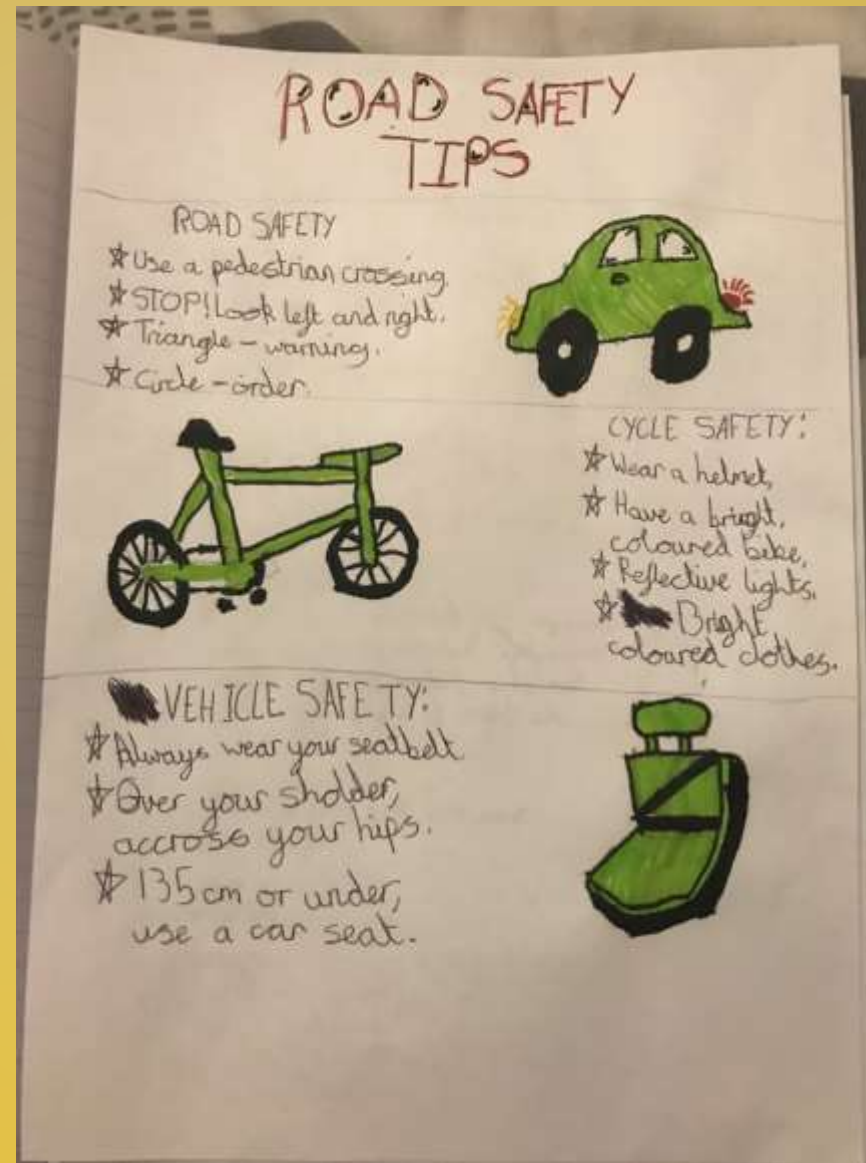 ROAD SAFETY
TIPS
ROAD SAFETY
☆ Use a pedestrian crossing.
☆ STOP! Look left and right.
☆ Triangle - warning.
☆ Circle - order.
CYCLE SAFETY:
☆ Wear a helmet,
☆ Have a bright,
coloured bike,
☆ Reflective lights,
☆ Bright
coloured clothes.
VEHICLE SAFETY:
☆ Always wear your seatbelt
☆ Over your sholder,
accross your hips.
☆ 135 cm or under,
use a car seat.